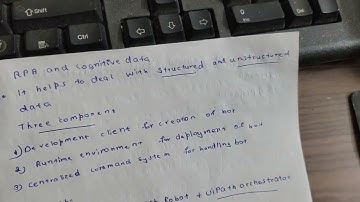 RPA and cognitive data
* It helps to deal with structured and unstructured
data
Three component
1) Development client for creation of bot
2) Runtime environment for deployment of bot
3) centralized command system for handling bot
Robot + UiPath orchestrator
Ctrl
Alt